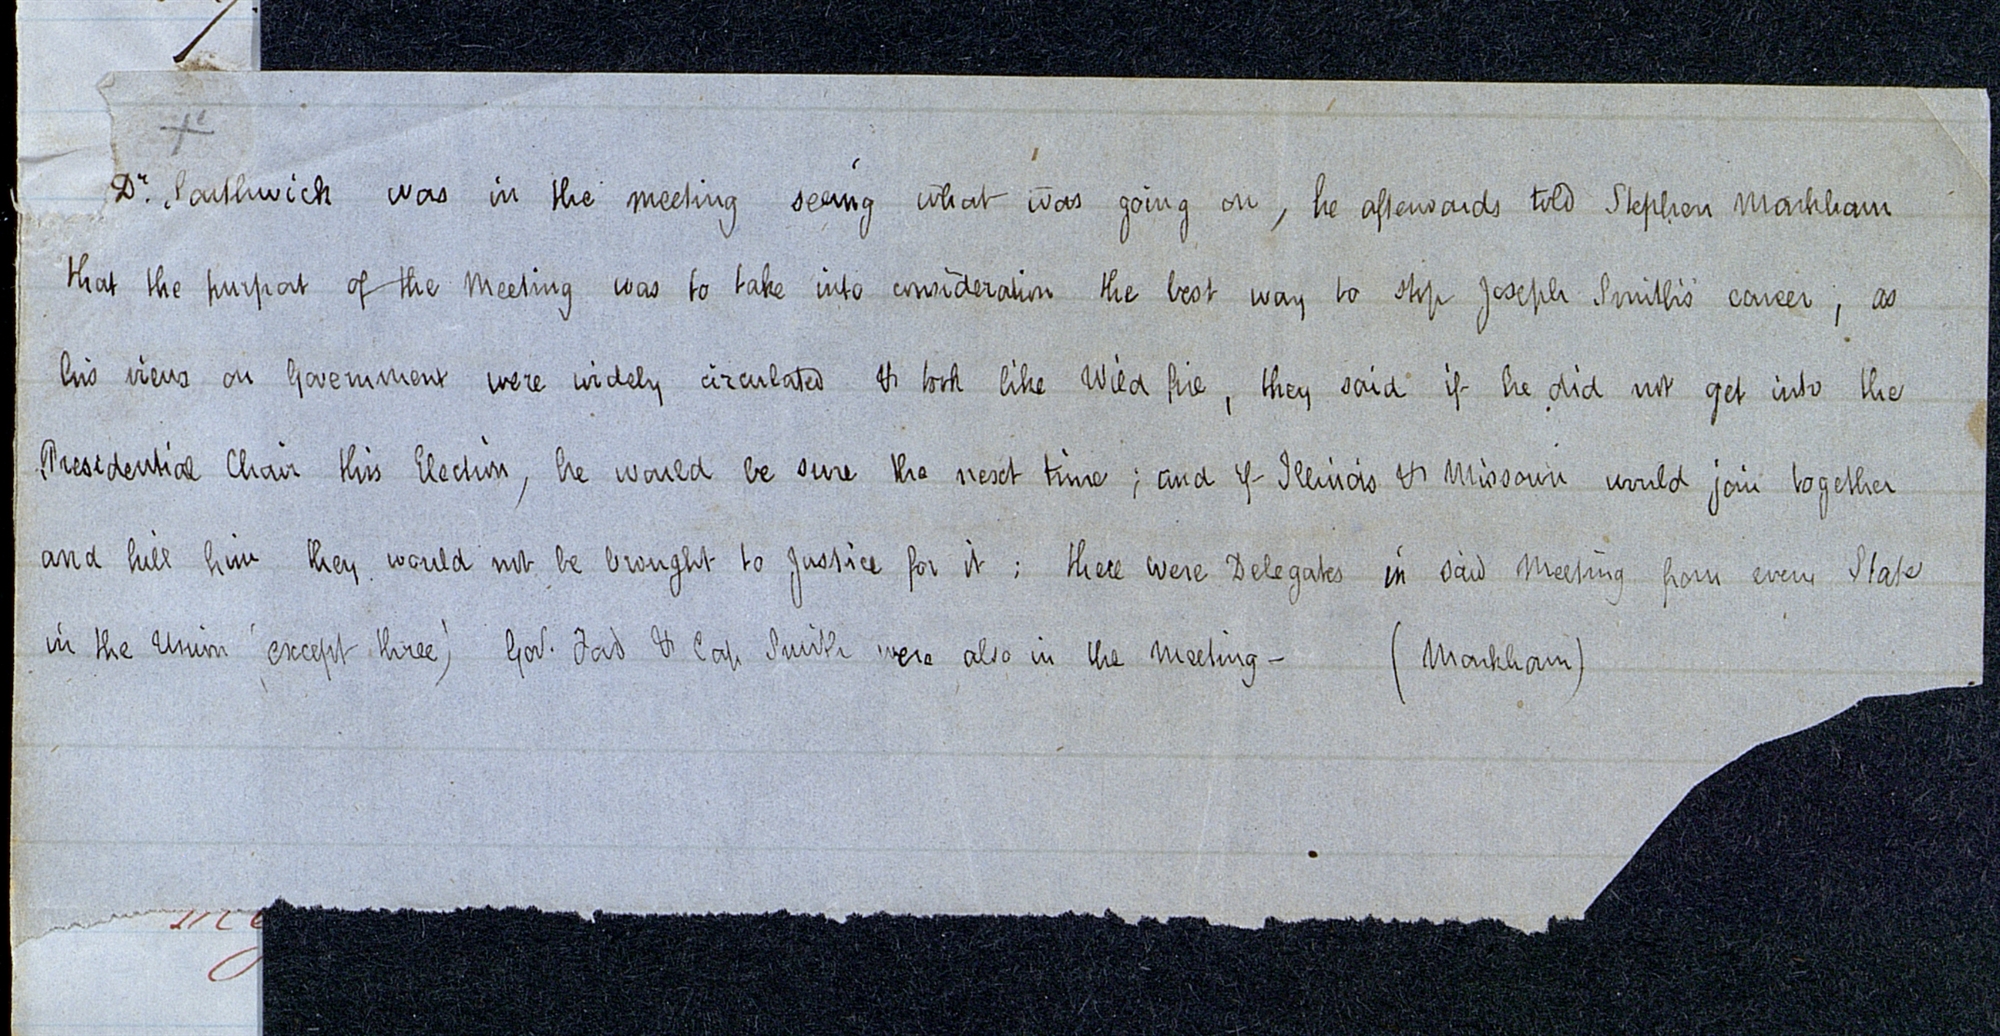 +
Dr. Southwick was in the meeting seeing what was going on, he afterwards told Stephen Markham
that the purport of the Meeting was to take into consideration the best way to stop Joseph Smith's career; as
his views on Government were widely circulated & took like Wild fire, they said if he did not get into the
Presidential Chair this Election, he would be sure the next time; and if Illinois & Missouri would join together
and kill him they would not be brought to Justice for it; there were Delegates in said Meeting from every State
in the Union (except three) Gov. Ford & Cap Smith were also in the Meeting— (Markham)